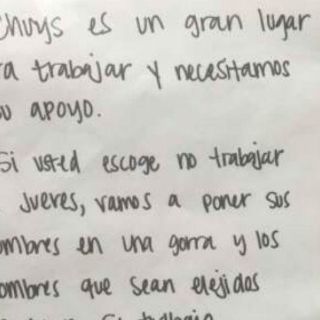 Chuys es un gran lugar
ra trabajar y necesitamos
su apoyo.
Si usted escoge no trabajar
Jueves, vamos a poner sus
ombres en una gorra y los
ombres que sean elejidos